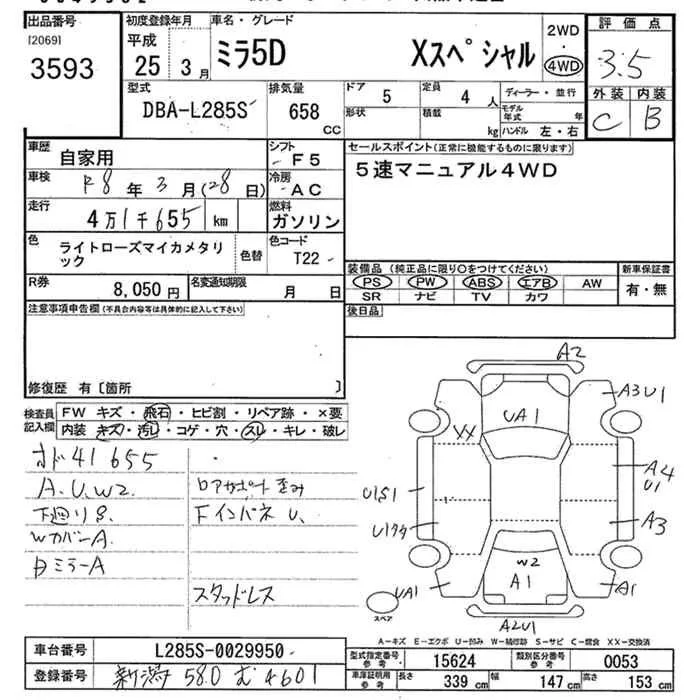 出品番号
[2069]
3593
初度登録年月
平成
25年3月
車名・グレード
ミラ5D Xスペシャル
2WD
・
4WD
評価点
3.5
外装 内装
C B
型式
DBA-L285S
排気量
658 CC
ドア
5
定員
4人
ディーラー・並行
形状
積載
kg
モデル年式 年
ハンドル 左・右
車歴
自家用
シフト
F5
セールスポイント(正常に機能するものに限ります)
5速マニュアル4WD
車検
R8年3月(28日)
冷房
AC
走行
4万1千655km
燃料
ガソリン
色
ライトローズマイカメタリック
色替
色コード
T22
R券
8,050円
名変通知期限
月 日
装備品(純正品に限り○をつけてください)
PS PW ABS エアB AW
SR ナビ TV カワ
新車保証書
有・無
後日品
注意事項申告欄(不具合内容等は具体的に記入して下さい)
修復歴 有〔箇所 〕
検査員記入欄
FW キズ・飛石・ヒビ割・リペア跡・×要
内装 キズ・汚レ・コゲ・穴・スレ・キレ・破レ
オド41655
A.U.W2.
下廻りS.
Wカバ-A.
Bミラ-A
ロアサポート歪み
FインパネU.
スタッドレス
A2
A3U1
UA1
XX
A4
U1
U1S1
A3
W2
A1
UA1
A1
A2U1
スペア
A-キズ E-エクボ U-凹み W-補修跡 S-サビ C-腐食 XX-交換済
車台番号
L285S-0029950
登録番号
新潟 580 む 4601
型式指定番号 参考
15624
類別区分番号 参考
0053
車庫証明用 参考
長さ 339cm 幅 147cm 高さ 153cm